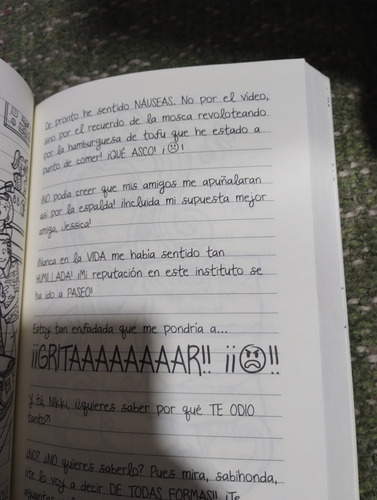 De pronto he sentido NÁUSEAS. No por el vídeo,
sino por el recuerdo de la mosca revoloteando
por la hamburguesa de tofu que he estado a
punto de comer! ¡QUÉ ASCO! ¡☹!
¡NO podía creer que mis amigos me apuñalaran
así por la espalda! ¡Incluida mi supuesta mejor
amiga, Jessica!
¡Nunca en la VIDA me había sentido tan
HUMILLADA! ¡Mi reputación en este instituto se
ha ido a PASEO!
Estoy tan enfadada que me pondría a...
¡¡GRITAAAAAAAAR!! ¡¡😠!!
Y tú, Nikki, ¿¡quieres saber por qué TE ODIO
tanto?!
¿NO? ¿NO quieres saberlo? Pues mira, sabihonda,
te lo voy a decir DE TODAS FORMAS!! ¡Te